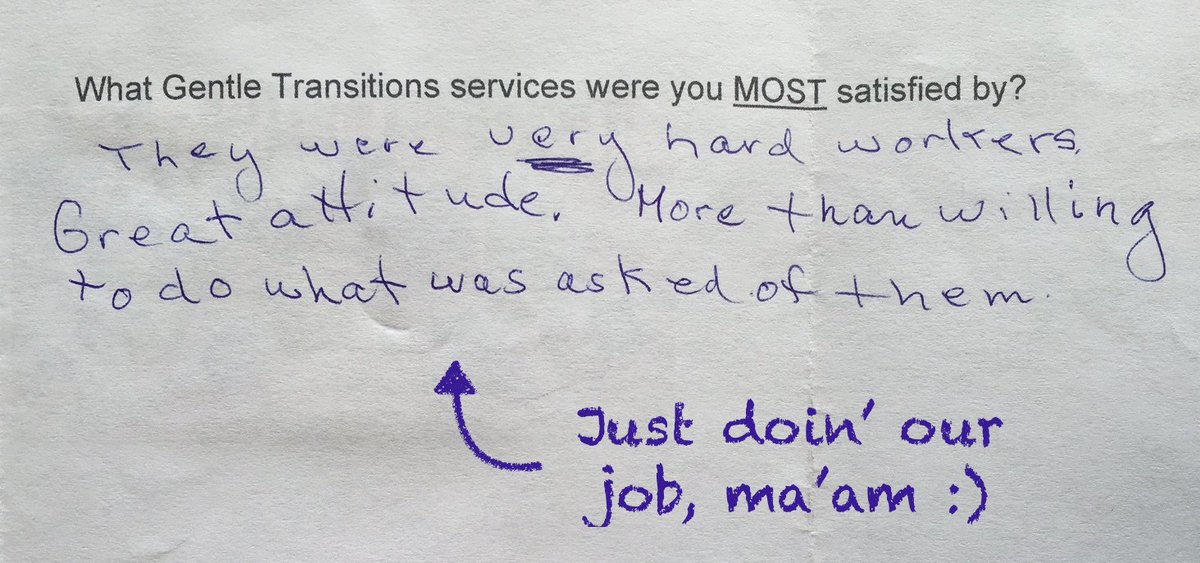 What Gentle Transitions services were you MOST satisfied by?
They were very hard workers.
Great attitude. More than willing
to do what was asked of them.
Just doin' our
job, ma'am :)